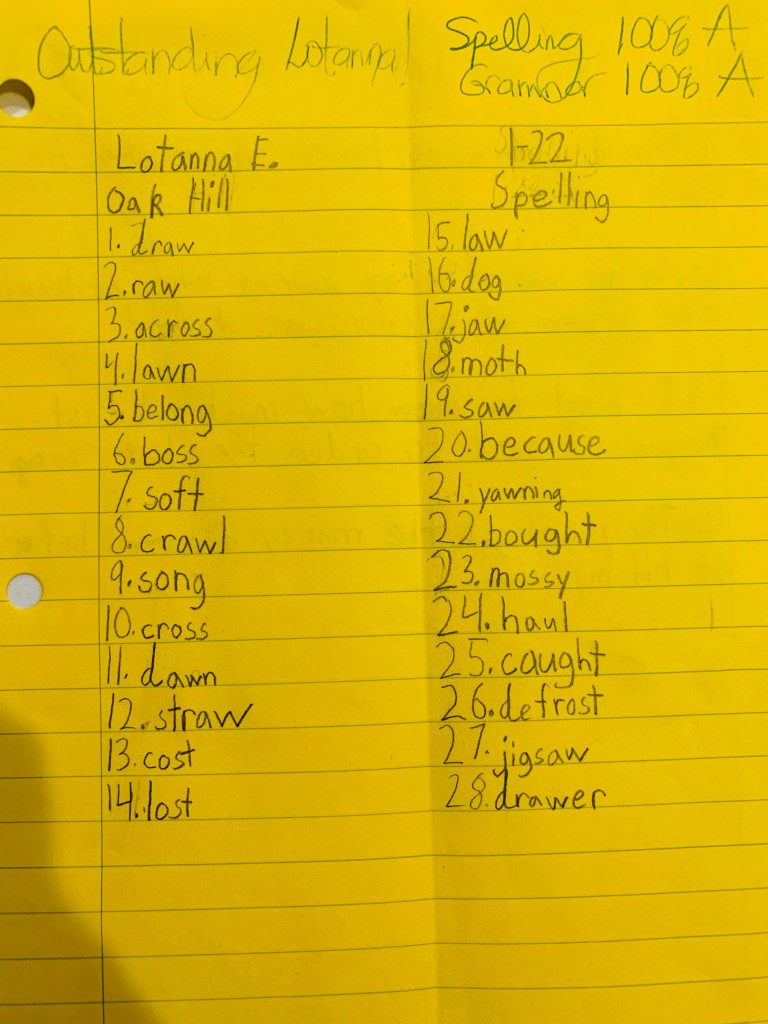 Outstanding Lotanna!
Spelling 100% A
Grammor 100% A
Lotanna E.
Oak Hill
1. draw
2. raw
3. across
4. lawn
5. belong
6. boss
7. soft
8. crawl
9. song
10. cross
11. dawn
12. straw
13. cost
14. lost
1-22
Spelling
15. law
16. dog
17. jaw
18. moth
19. saw
20. because
21. yawning
22. bought
23. mossy
24. haul
25. caught
26. defrost
27. jigsaw
28. drawer